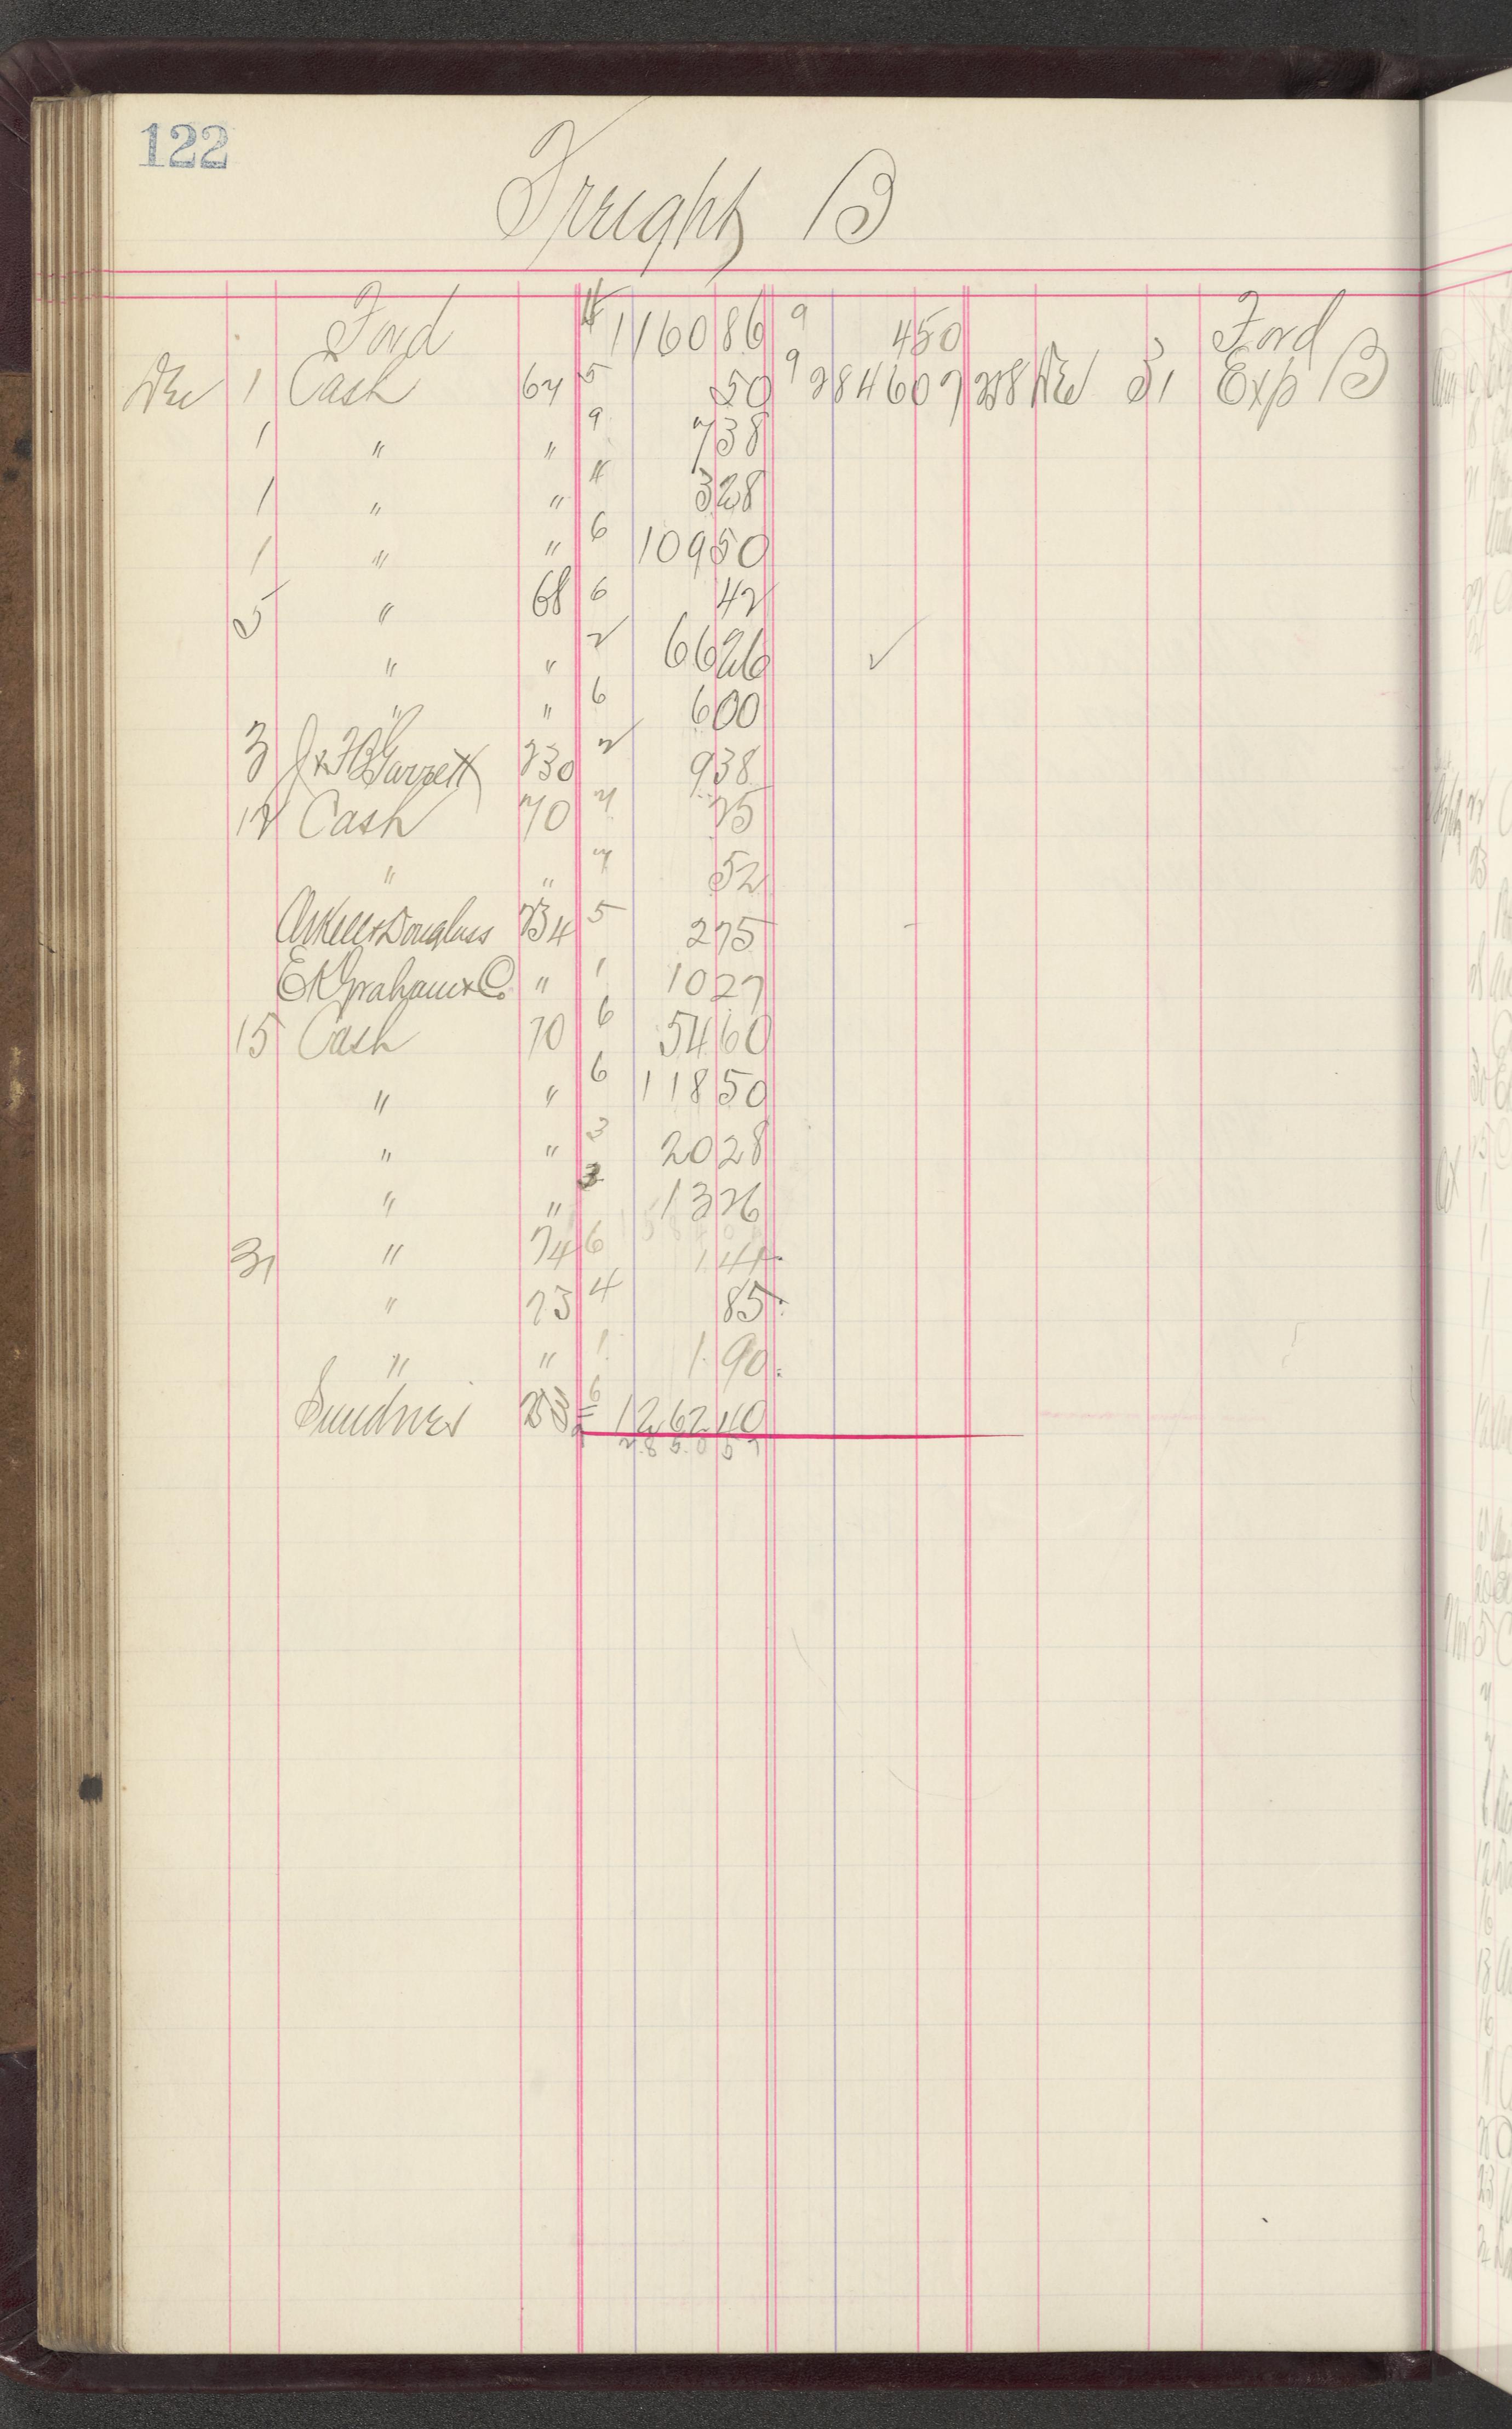 122
Freight B
Ford 1160 86 9 4 50 Ford
Dec 1 Cash 67 5 50 9 2846 07 Dec 31 Exp B
1 " " 9 7 38
1 " " 4 3 28
1 " " 6 109 50
5 " 68 6 42
" " 2 66 26 ✓
" " 6 6 00
3 J & F B Garrett 230 2 9 38
12 Cash 70 7 75
" " 7 52
Arkell & Douglass 234 5 2 75
E K Graham & Co. " 1 10 27
15 Cash 70 6 54 60
" " 6 118 50
" " 3 20 28
" " 3 13 26
31 " 74 6 1 41
" 73 4 85
" " 1 1.90
Sundries 6 1262 40
2850 57